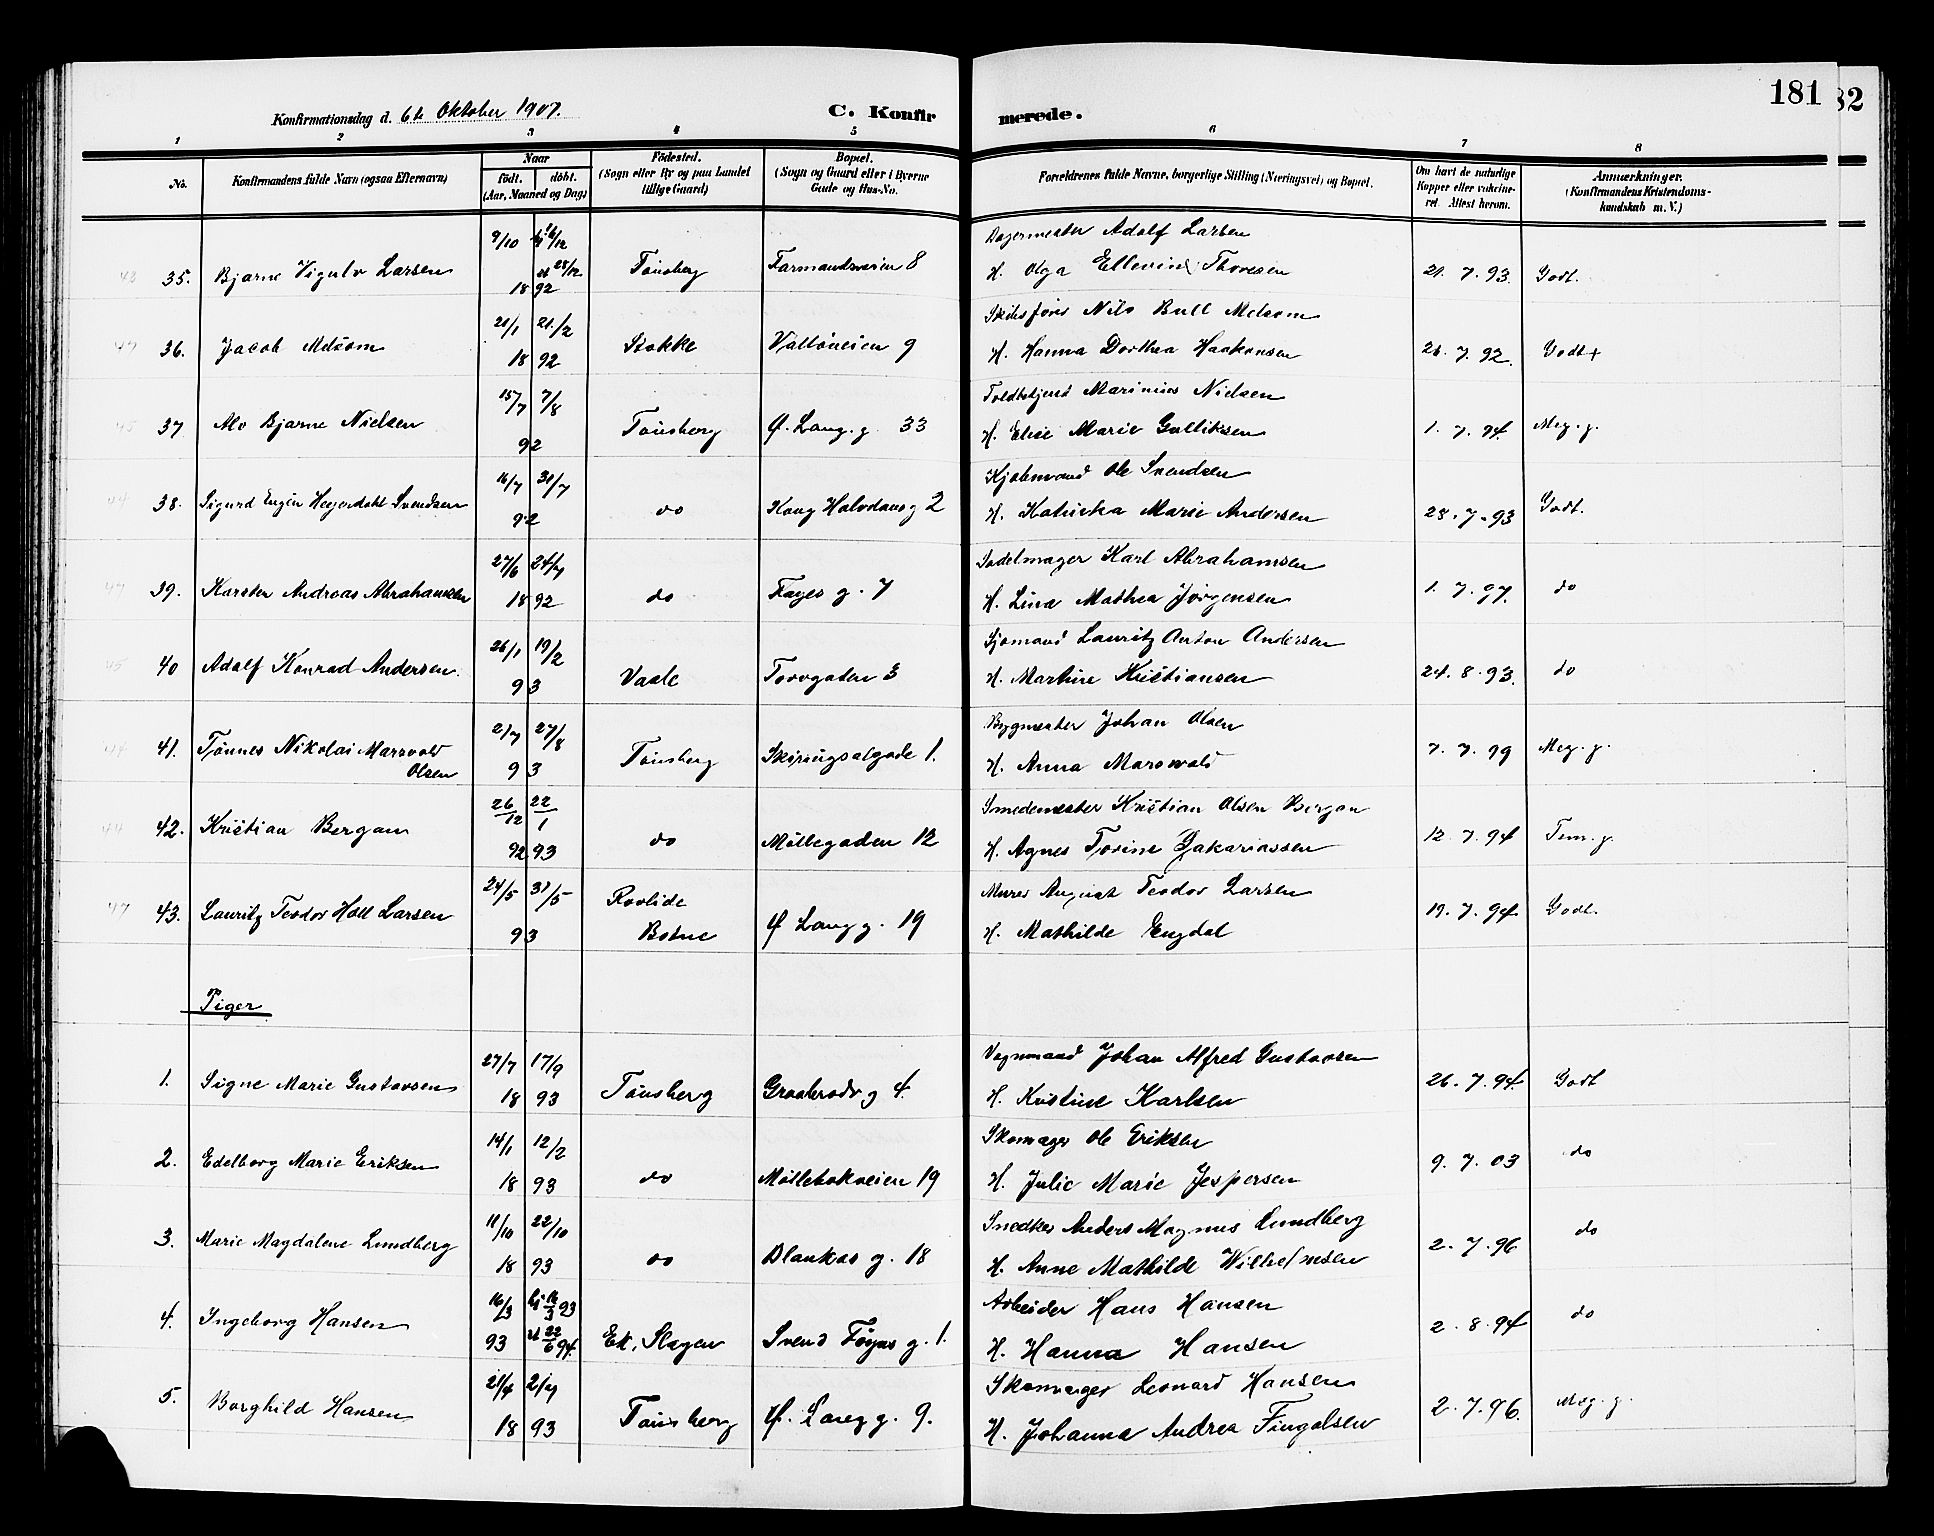 181
82
Konfirmationsdag d. 6te Oktober 1907.
C. Konfirmerede.
1 2 3 4 5 6 7 8
No.
Konfirmandens fulde Navn (ogsaa Efternavn)
Naar
födt. döbt.
(Aar, Maaned og Dag)
Födested.
(Sogn eller By og paa Landet
tillige Gaard)
Bopæl.
(Sogn og Gaard eller i Byerne
Gade og Hus-No.
Forældrenes fulde Navne, borgerlige Stilling (Næringsvei) og Bopæl.
Om havt de naturlige
Kopper eller vakcine-
ret. Attest herom.
Anmærkninger.
(Konfirmandens Kristendoms-
kundskab m. V.)
35. Bjarne Vigulv Larsen 9/10 hj 16/12 st 28/12 18 92 Tönsberg Farmandsveien 8
Adolf Larsen
H. Olga Ellevine Thoresen 21. 7. 93. Godt.
36. Jacob Melsom 20/1 21/2 18 92 Stokke Vallöveien 9
Skibsförer Nils Bull Melsom
H. Hanna Dorthea Haakonsen 26. 7. 92. Godt+
37 Alv Bjarne Nielsen 15/7 7/8 92 Tönsberg Ø. Lang. g. 33
Toldbetjent Marinius Nielsen
H. Elise Marie Gulliksen 1. 7. 94. Meg. g.
38. Sigurd Engin Heyerdahl Svendsen 16/7 31/7 92 do Kong Halvdans g 2
Kjöbmand Ole Svendsen
H. Katinka Marie Andersen 28. 7. 93 Godt.
39. Karsten Andreas Abrahamsen 27/6 24/7 18 92 do Föyes g. 7
Sadelmager Karl Abrahamsen
H. Lina Mathea Jörgensen 1. 7. 97. do
40 Adolf Konrad Andersen. 26/1 19/2 93 Vaale Torvgaten 3
Sjömand Lauritz Anton Andersen
H. Martine Kristiansen 24. 8. 93. do
41. Tönnes Nikolai Marovold
Olsen 2/7 27/8 93 Tönsberg Skiringsalgade 1.
Bygmester Johan Olsen
H. Anna Marowold 7. 7. 99 Meg. g.
42. Kristian Bergan 26/12 22/1 92 93 do Möllegaden 12
Smedemester Kristian Olsen Bergan
H. Agnes Torine Zakariassen 12. 7. 94 Tem. g.
43. Lauritz Teodor Holl Larsen 24/5 31/5 93 Rovlide
Botne Ø Lang g. 19
Murer August Teodor Larsen
H. Mathilde Engdal 19. 7. 94 Godt.
Piger
1. Signe Marie Gustavsen 27/7 17/9 18 93 Tönsberg Graabrödr g 4.
Vognmand Johan Alfred Gustavsen
H. Kristine Karlsen 26. 7. 94. Godt
2. Edelborg Marie Eriksen 14/1 12/2 18 93 do Möllebakveien 19
Skomager Ole Eriksen
H. Julie Marie Jespersen 9. 7. 03 do
3. Marie Magdalene Lundberg 11/10 22/10 18 93 do Blankas g. 18
Snedker Anders Magnus Lundberg
H. Anne Mathilde Wilhelmsen 2. 7. 96 do
4. Ingeborg Hansen 16/3 93 hj 16/3 93 st 22/6 94. Ek, Slagen Svend Föyns g. 1.
Arbeider Hans Hansen
H. Hanna Hansen 2. 8. 94 do
5. Borghild Hansen 21/4 2/7 18 93 Tönsberg Ø. Lang g. 9.
Skomager Leonard Hansen
H. Johanna Andrea Fingalsen 2. 7. 96. Meg. g.